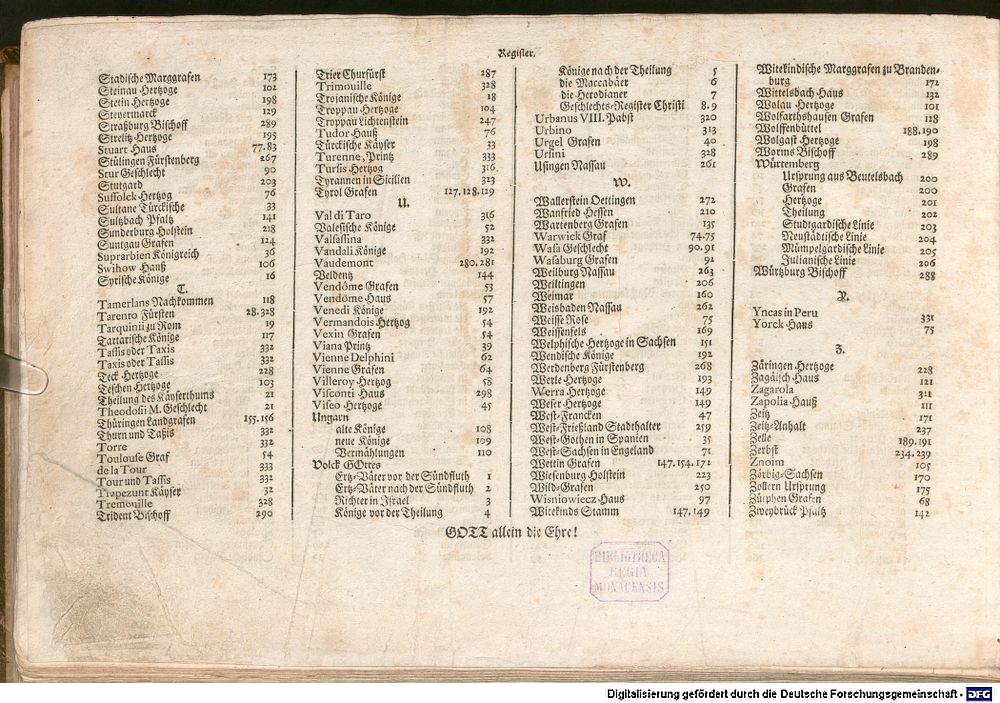 Register.
Stadische Marggrafen 173
Steinau Hertzoge 102
Stetin Hertzoge 198
Steyermarck 129
Straßburg Bischoff 289
Strelitz Hertzoge 195
Stuart Haus 77.83
Stülingen Fürstenberg 267
Stur Geschlecht 90
Stutgard 203
Suffolck Hertzog 76
Sultane Türckische 33
Sultzbach Pfaltz 141
Sunderburg Holstein 218
Suntgau Grafen 124
Suprarbien Königreich 36
Swihow Hauß 106
Syrische Könige 16
T.
Tamerlans Nachkommen 118
Tarento Fürsten 28.328
Tarquinii zu Rom 19
Tartarische Könige 117
Tassis oder Taxis 332
Taxis oder Tassis 332
Teck Hertzoge 228
Teschen Hertzoge 103
Theilung des Käyserthums 21
Theodosii M. Geschlecht 21
Thüringen Landgrafen 155.156
Thurn und Taßis 332
Torre 332
Toulouse Graf 54
de la Tour 333
Tour und Tassis 332
Trapezunt Käyser 32
Tremouille 328
Trident Bischoff 290
Trier Churfürst 287
Trimouille 328
Trojanische Könige 18
Troppau Hertzoge 104
Troppau Lichtenstein 247
Tudor Hauß 76
Türckische Käyser 33
Turenne, Printz 333
Tursis Hertzog 316
Tyrannen in Sicilien 323
Tyrol Grafen 127.128.129
U.
Val di Taro 316
Valesische Könige 52
Valsassina 332
Vandali Könige 192
Vaudemont 280.281
Veldentz 144
Vendôme Grafen 53
Vendôme Haus 57
Venedi Könige 192
Vermandois Hertzog 54
Vexin Grafen 54
Viana Printz 39
Vienne Delphini 62
Vienne Grafen 64
Villeroy Hertzog 58
Visconti Haus 298
Viseo Hertzoge 45
Ungarn
alte Könige 108
neue Könige 109
Vermählungen 110
Volck GOttes
Ertz-Väter vor der Sündfluth 1
Ertz-Väter nach der Sündfluth 2
Richter in Israel 3
Könige vor der Theilung 4
Könige nach der Theilung 5
die Maccabäer 6
die Herodianer 7
Geschlechts-Register Christi 8.9
Urbanus VIII. Pabst 320
Urbino 313
Urgel Grafen 40
Ursini 328
Usingen Nassau 261
W.
Wallerstein Oettingen 272
Wanfried Hessen 210
Wartenberg Grafen 135
Warwick Graf 74.75
Wasa Geschlecht 90.91
Wasaburg Grafen 91
Weilburg Nassau 263
Weiltingen 206
Weimar 160
Weisbaden Nassau 262
Weisse Rose 75
Weissenfels 169
Welphische Hertzoge in Sachsen 151
Wendische Könige 192
Werdenberg Fürstenberg 268
Werle Hertzoge 193
Werra Hertzoge 149
Weser Hertzoge 149
West-Francken 47
West-Frießland Stadthalter 259
West-Gothen in Spanien 35
West-Sachsen in Engeland 71
Wettin Grafen 147.154.172
Wiesenburg Holstein 223
Wild-Grafen 250
Wisniowiecz Haus 97
Witekinds Stamm 147.149
Witekindische Marggrafen zu Branden-
burg 172
Wittelsbach Haus 132
Wolau Hertzoge 101
Wolfarthshausen Grafen 128
Wolffenbüttel 188.190
Wolgast Hertzoge 198
Worms Bischoff 289
Würtemberg
Ursprung aus Beutelsbach 200
Grafen 200
Hertzoge 201
Theilung 202
Studtgardische Linie 203
Neustädtische Linie 204
Mümpelgardische Linie 205
Julianische Linie 206
Würtzburg Bischoff 288
Y.
Yncas in Peru 331
Yorck Haus 75
Z.
Zäringen Hertzoge 228
Zagäisch Haus 121
Zagarola 321
Zapolia Hauß 111
Zeitz 171
Zeitz-Anhalt 237
Zelle 189.191
Zerbst 234.239
Znoim 105
Zörbig-Sachsen 170
Zollern Ursprung 175
Zütphen Grafen 68
Zweybrück Pfaltz 142
GOTT allein die Ehre!
BIBLIOTHECA
REGIA
MONACENSIS
Digitalisierung gefördert durch die Deutsche Forschungsgemeinschaft - DFG